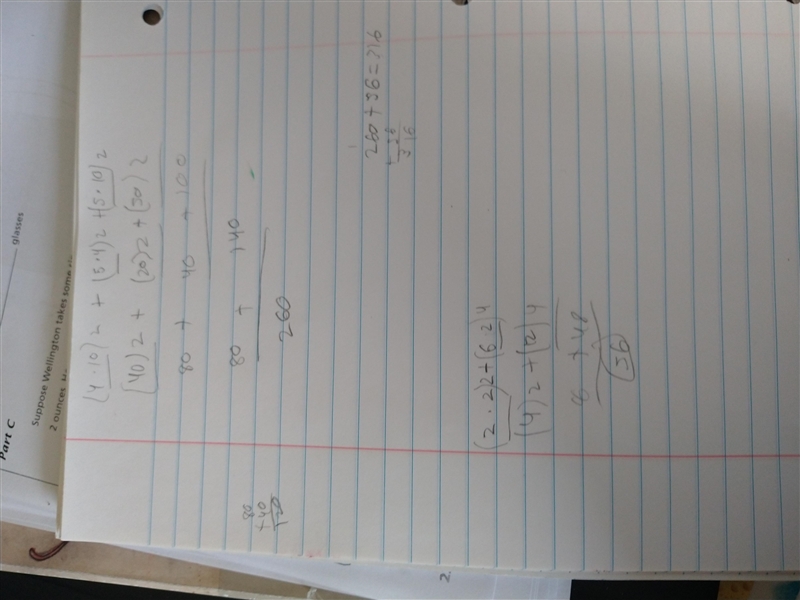 Part C
Suppose Wellington takes some
2 ounces
glasses
(4·10)2 + (5·4)2+(5·10)2
(40)2 + (20)2+(50)2
80 + 40 +100
80 + 140
260
80
+40
120
260+56=316
(2·2)2+(6·2)4
(4)2+(12)4
8 +48
56
2.